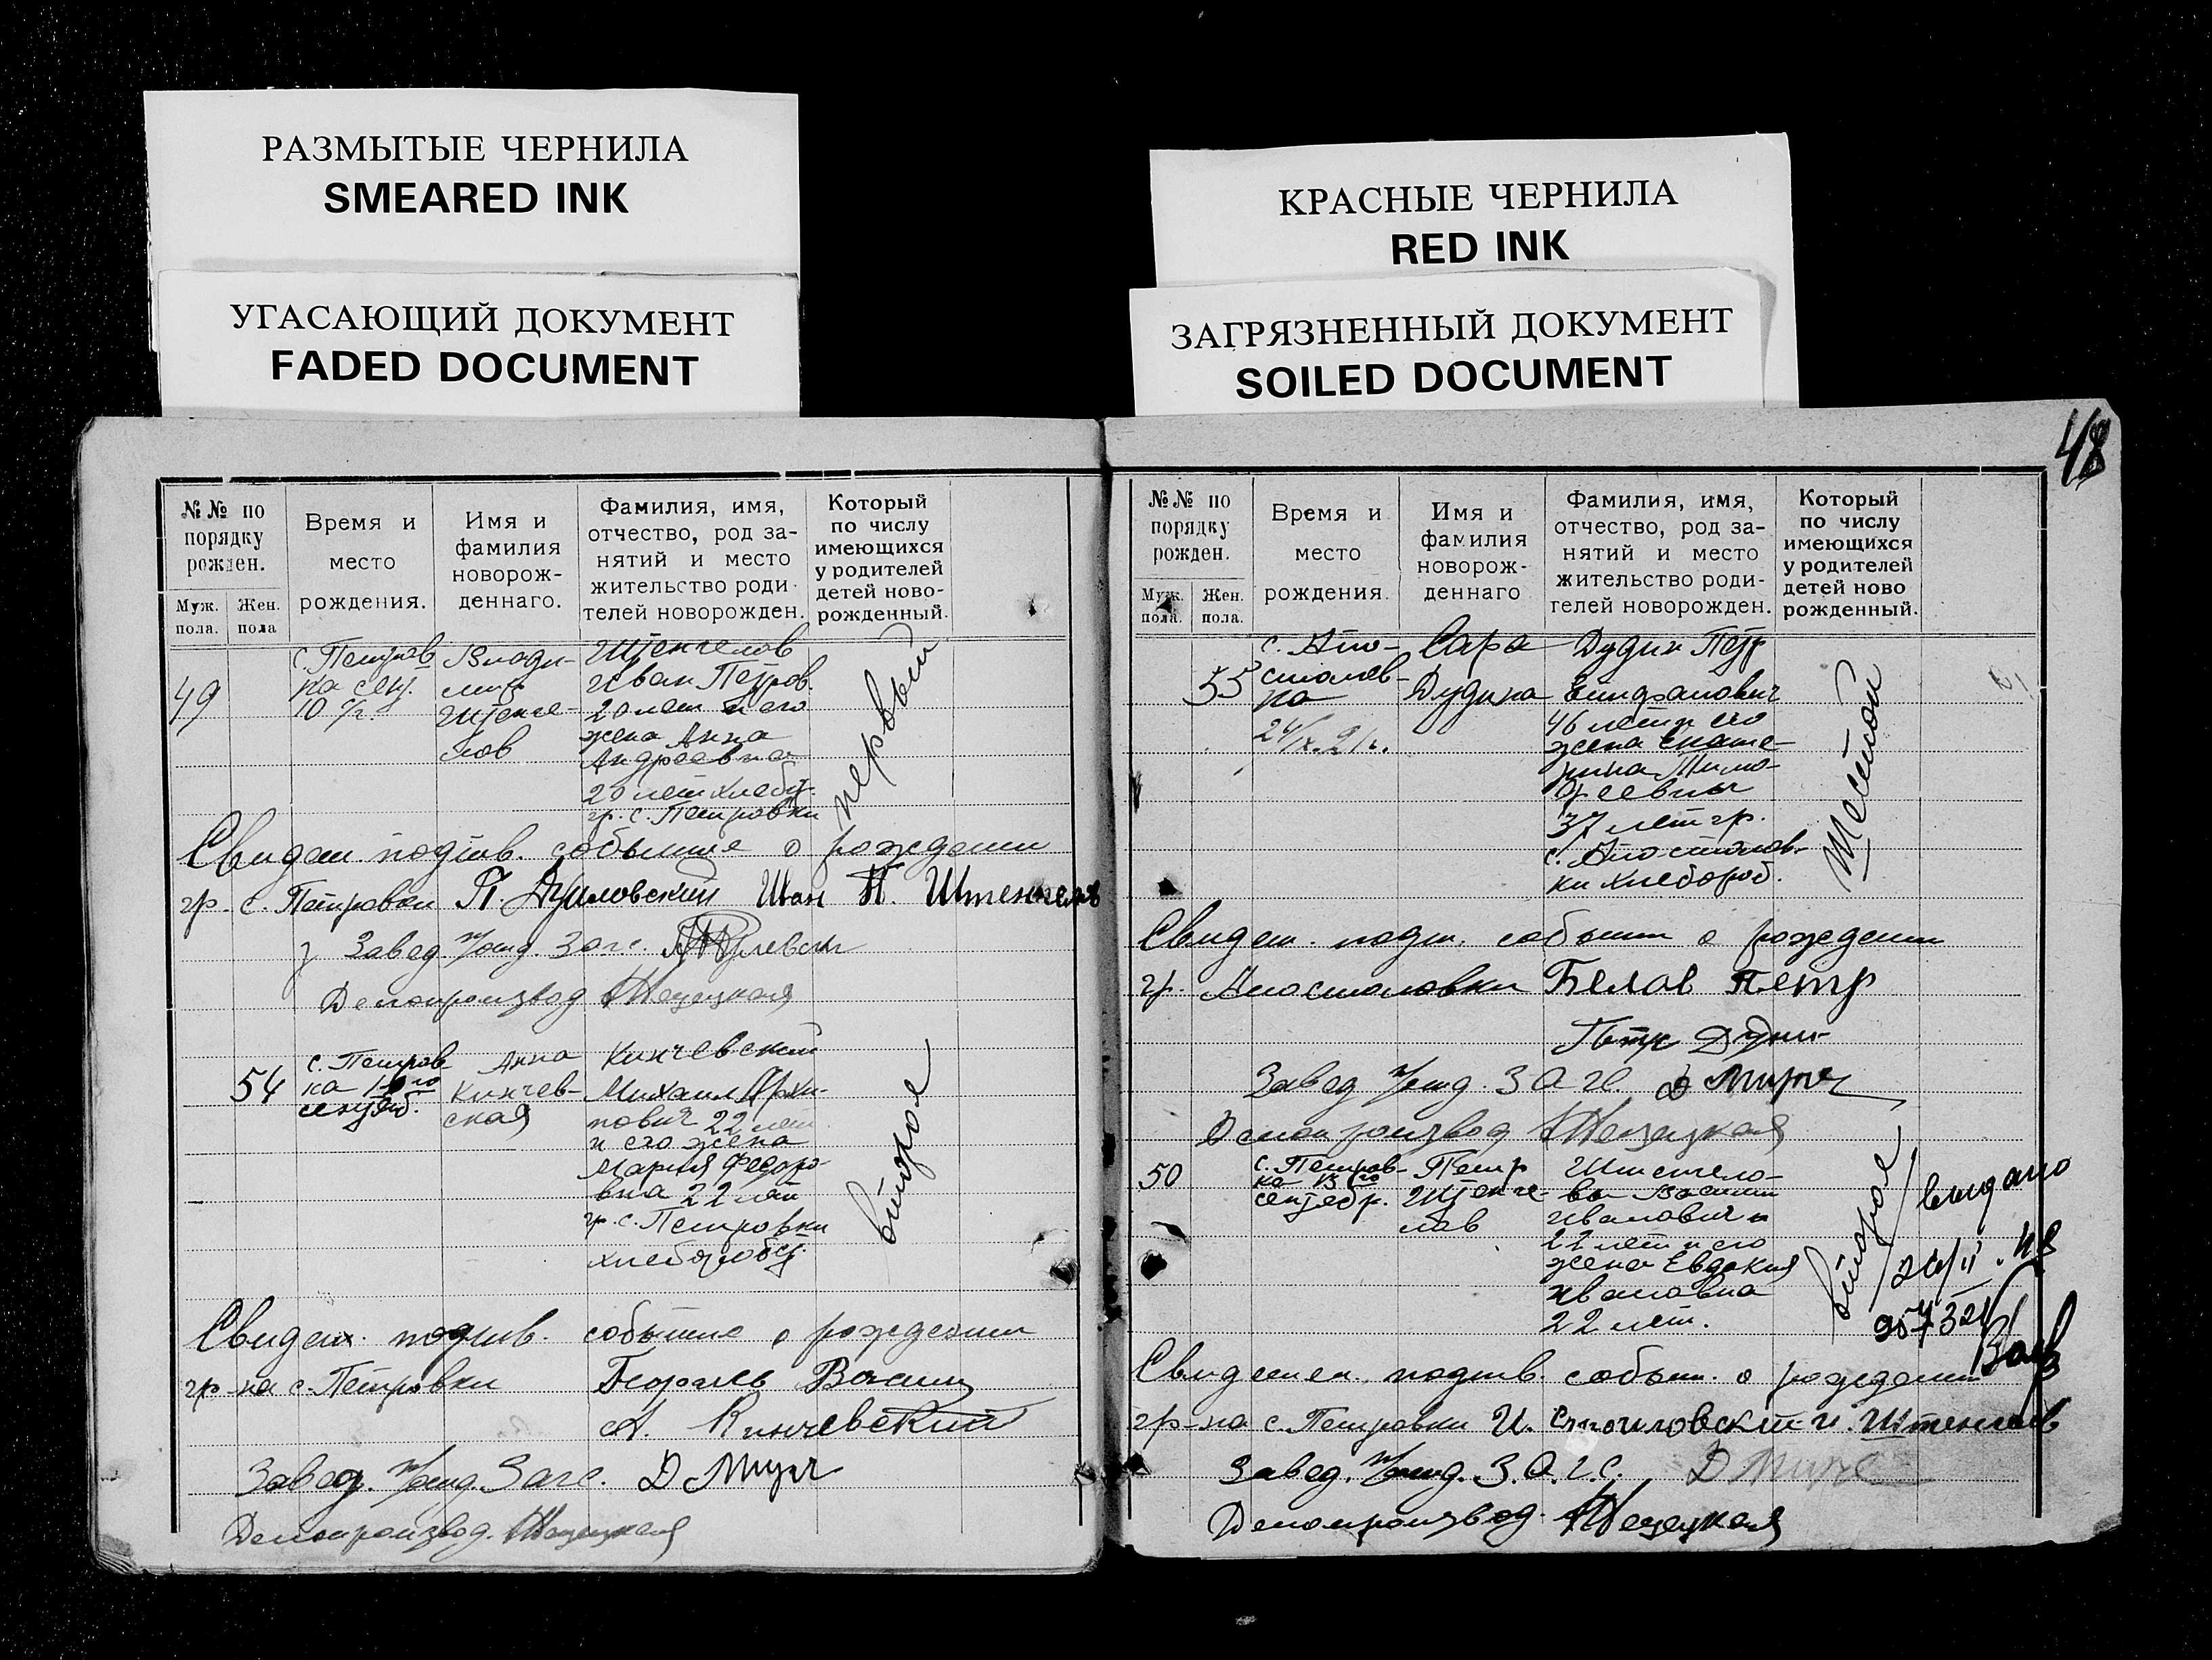 РАЗМЫТЫЕ ЧЕРНИЛА
SMEARED INK
УГАСАЮЩИЙ ДОКУМЕНТ
FADED DOCUMENT
КРАСНЫЕ ЧЕРНИЛА
RED INK
ЗАГРЯЗНЕННЫЙ ДОКУМЕНТ
SOILED DOCUMENT
№ № по
порядку
рожден.
Муж.
пола.
Жен.
пола
Время и
место
рождения.
Имя и
фамилия
новорож-
деннаго.
Фамилия, имя,
отчество, род за-
нятий и место
жительство роди-
телей новорожден.
Который
по числу
имеющихся
у родителей
детей ново-
рожденный.
49
с. Петров
ка сент.
10 /г.
Влади-
мир
Штенге-
лов
Штенгелов
Иван Петров.
20 лет и его
жена Анна
Андреевна
20 лет хлебр.
гр. с. Петровки
первый
Свидет. подтв. событие о рождении
гр. с. Петровки П. Шан П. Штенгелов
Завед. Загс.
Делопроизвод
54
с. Петров
ка
сентяб.
Анна
Кинчев-
ская
Кинчевский
Михаил Архи-
пович 22 лет
и его жена
Мария Федоро-
вна 22 лет
гр. с. Петровки
хлебороб
второе
Свидет. подтв. событие о рождении
гр-на с. Петровки
А. Кинчевский
Завед. Загс. Д
Делопроизвод.
48
№ № по
порядку
рожден.
Муж.
пола.
Жен.
пола.
Время и
место
рождения.
Имя и
фамилия
новорож-
деннаго
Фамилия, имя,
отчество, род за-
нятий и место
жительство роди-
телей новорожден.
Который
по числу
имеющихся
у родителей
детей ново
рожденный.
55
с. Апо-
столов-
ка
24/IX.
Сара
Дудина
Дудин Петр
46 лет и его
жена Екате-
рина Тимо-
феевны
37 лет гр.
с. Апостолов-
ки хлебороб.
Шестой
Свидет. подт. событи о рождении
гр. Апостоловки Белов Петр
Петр Дудин
Завед. З А ГС. Д
Делопроизвод
50
с. Петров-
ка 13 го
сентебр.
Петр
Штенге-
лов
Штенгело-
ва Василий
Иванович
22 лет и его
жена Евдокия
Ивановна
22 лет.
второе
видано
957321
Свидетел. подтв. событ. о рождении
гр-на с. Петровки И. Стоиловский и. Штенгелов
Завед. З.А.Г.С. Д
Делопроизвод.